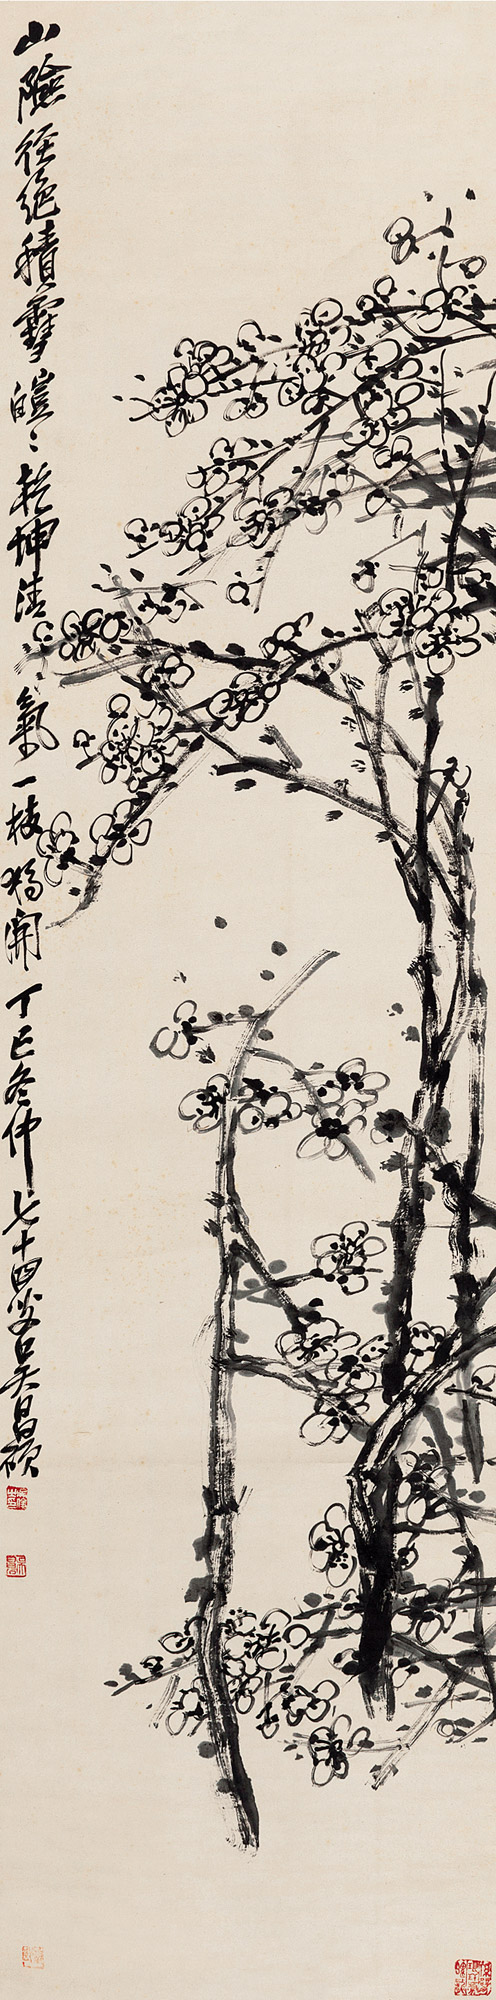 山險徑絕積雪皚〻乾坤清氣一枝獨開丁巳冬仲七十四叟吳昌碩